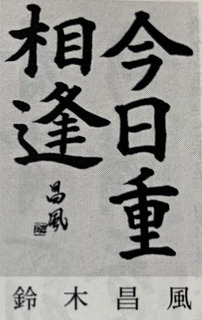 今日重
相逢
昌風
鈴木昌風